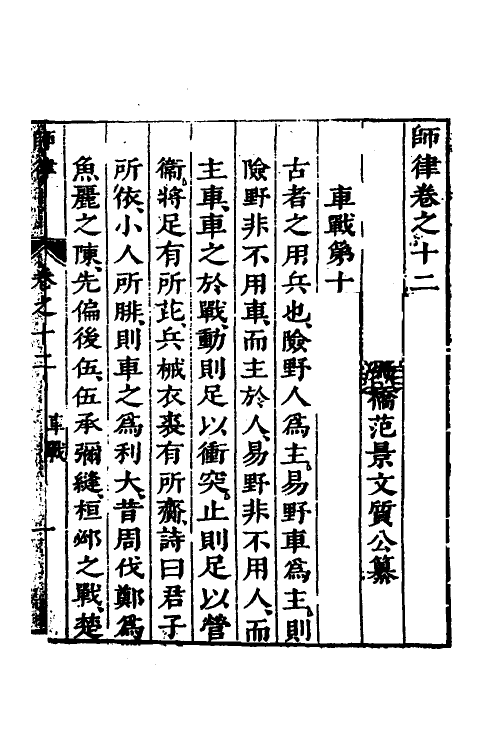 師律卷之十二
橋范景文質公纂
車戰第十
古者之用兵也、險野人為主、易野車為主、則
險野非不用車、而主於人、易野非不用人、而
主車、車之於戰、動則足以衝突、止則足以營
衛、將足有所芘、兵械衣裘有所齎、詩曰君子
所依、小人所腓、則車之為利大、昔周伐鄭為
魚麗之陳、先偏後伍、伍承彌縫、桓邲之戰、楚
師律
卷之十二
車戰
一